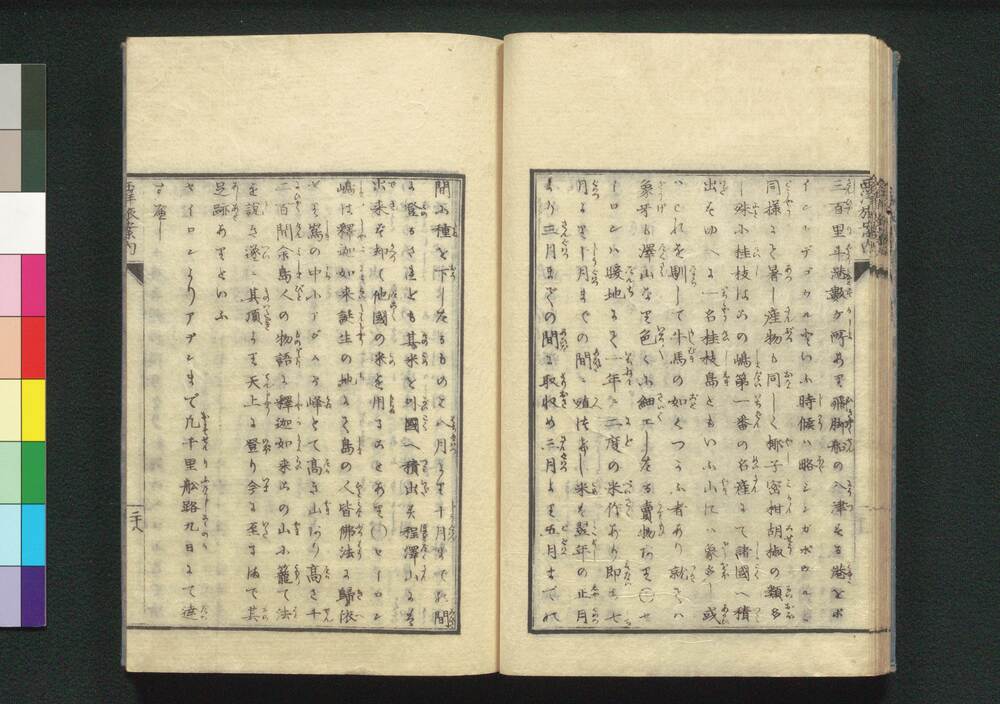 三百里斗港數ケ所あり飛脚船の入津する港をポ
イントデゴウルといふ時候ハ略シンガポウルと
同様にて暑し産物も同しく椰子密柑胡椒の類多
し殊小桂枝はこの嶋第一番の名産にて諸國へ積
出すゆへに一名桂枝島ともいふ山にハ象多し或
ハこれを馴して牛馬の如くつかふ者あり就てハ
象牙も澤山なり色〱に細工したる賣物あり○セ
イロンハ暖地にて一年に二度の米作あり即ち七
月より十月までの間に植付けし米を翌年の正月
より三月までの間に取収め二月より五月までの
間に種を下したるものを八月より十月までの間
に登るされども其米を外國へ積出す程澤山にハ
出来ず却て他國の米を用ることあり○セイロン
嶋は釋迦如来誕生の地にて島の人皆佛法に歸依
せり嶌の中にアダムスの峰とて高き山あり高さ千
二百間余島人の物語に釋迦如来此の山に籠て法
を説き遂に其頂より天上に登り今に至るまで其
足跡ありといふ
セイロンよりアデンまで凡千里舩路九日にて達
すべし
西洋旅案内
二十八